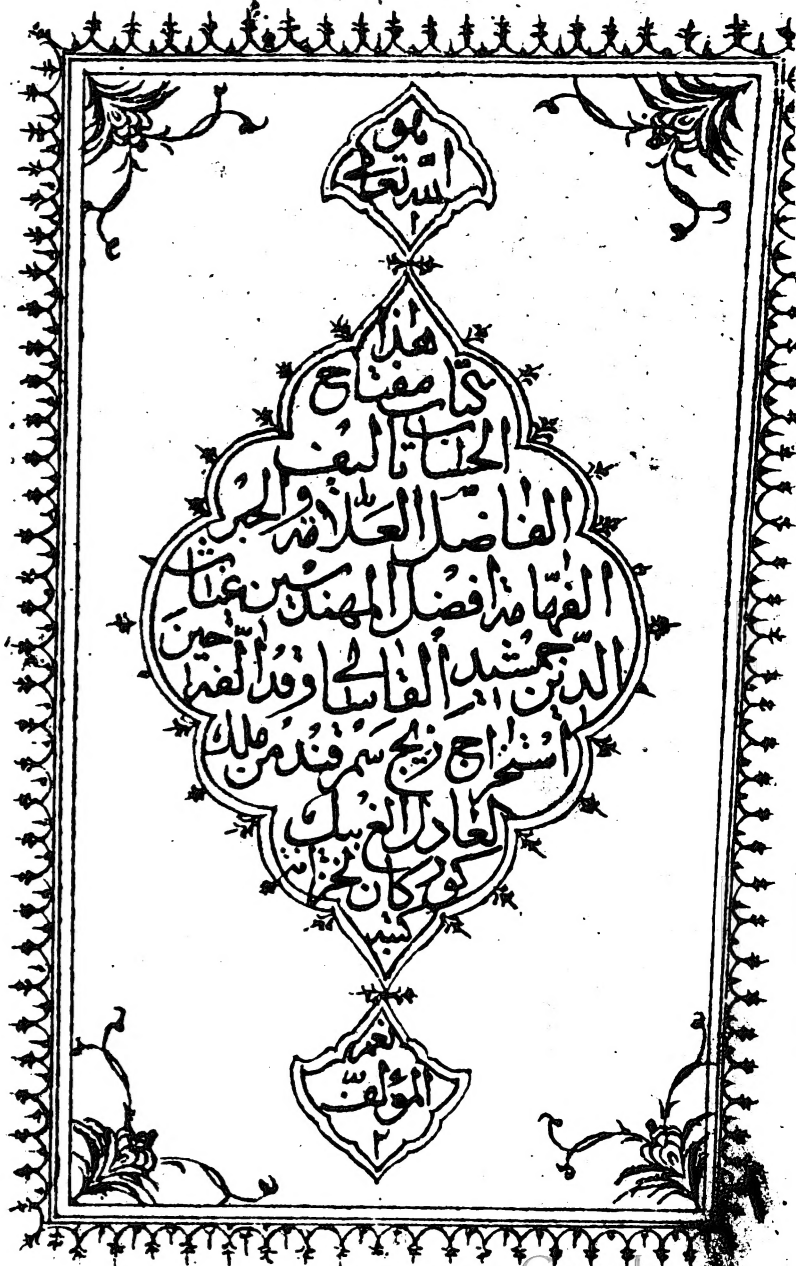 هو
الله تعالى
١
هذا
كتاب مفتاح
الحساب تأليف
الفاضل العلامه والحبر
الفهامه افضل المهندسين غياث
الدين جمشيد القاسانى وقد الفه حين
استخراج زيج سمرقند من ملك
لعادل الغ بيك
كوركان لخزانة
كتبه
المؤلف
٢